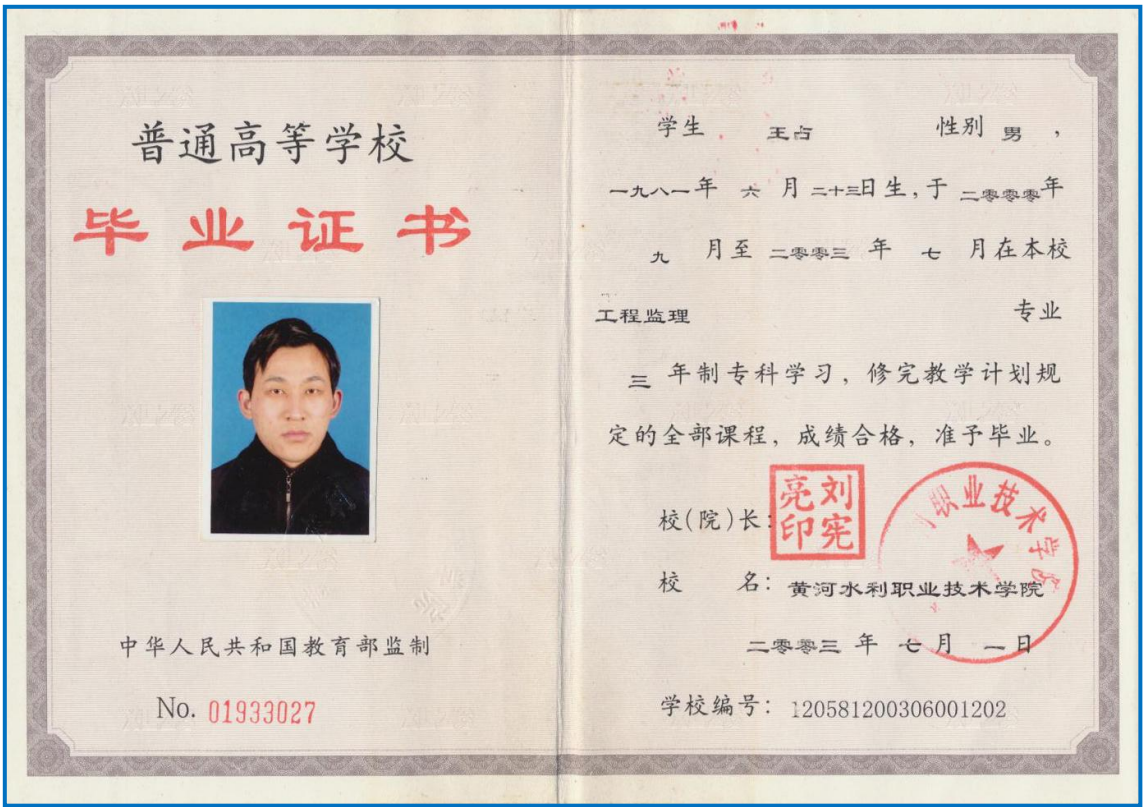 普通高等学校
毕业证书
中华人民共和国教育部监制
No. 01933027
学生 王占 性别 男，
一九八一年 六 月 二十三日生，于 二零零零年
九 月至 二零零三 年 七 月在本校
工程监理 专业
三 年制专科学习，修完教学计划规
定的全部课程，成绩合格，准予毕业。
校(院)长：
刘宪亮印
职业技术学院
校 名：黄河水利职业技术学院
二零零三 年 七 月 一 日
学校编号：120581200306001202